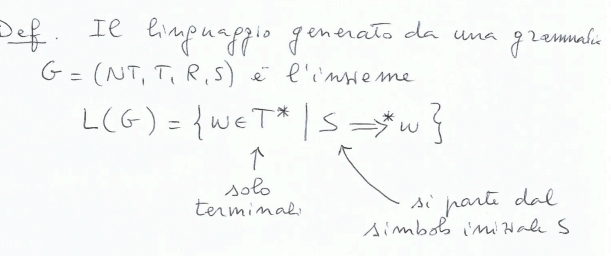 Def. Il linguaggio generato da una grammatic
G = (NT, T, R, S) è l'insieme
L(G) = { w ∈ T* | S ⇒* w }
↑
solo
terminali
si parte dal
simbolo iniziale S